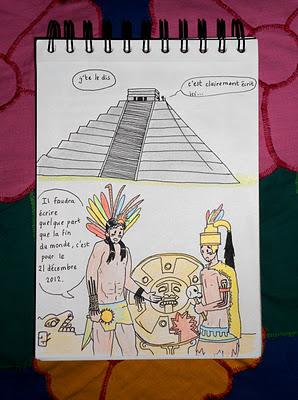 j'te le dis
c'est clairement écrit
ici...
Il faudra
écrire
quelque part
que la fin
du monde, c'est
pour le
21 décembre
2012.